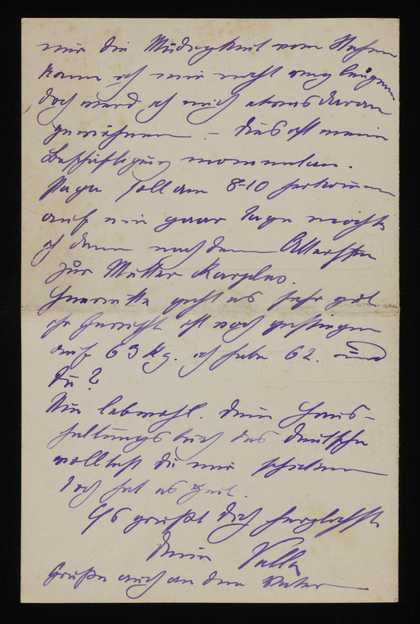 nur die Müdigkeit vom Nähen
kann ich mir nicht weg
doch werd ich mich etwas daran
gewöhnen – dies ist meine
Beschäftigung momentan.
Papa soll am 8-10 herkommen
auf ein paar Tage möchte
ich dann nach dem
zur Mutter Karplus.
Henriette geht es sehr gut
ihr Gewicht ist noch gestiegen
auf 63 kg. ich habe 62. und
Du?
Nun lebewohl. Dein Haus-
haltungsbuch das Deutsche
wolltest du mir schicken
doch hat es Zeit.
Es grüßt Dich herzlichst
Deine Valli
Grüße auch an den Vater